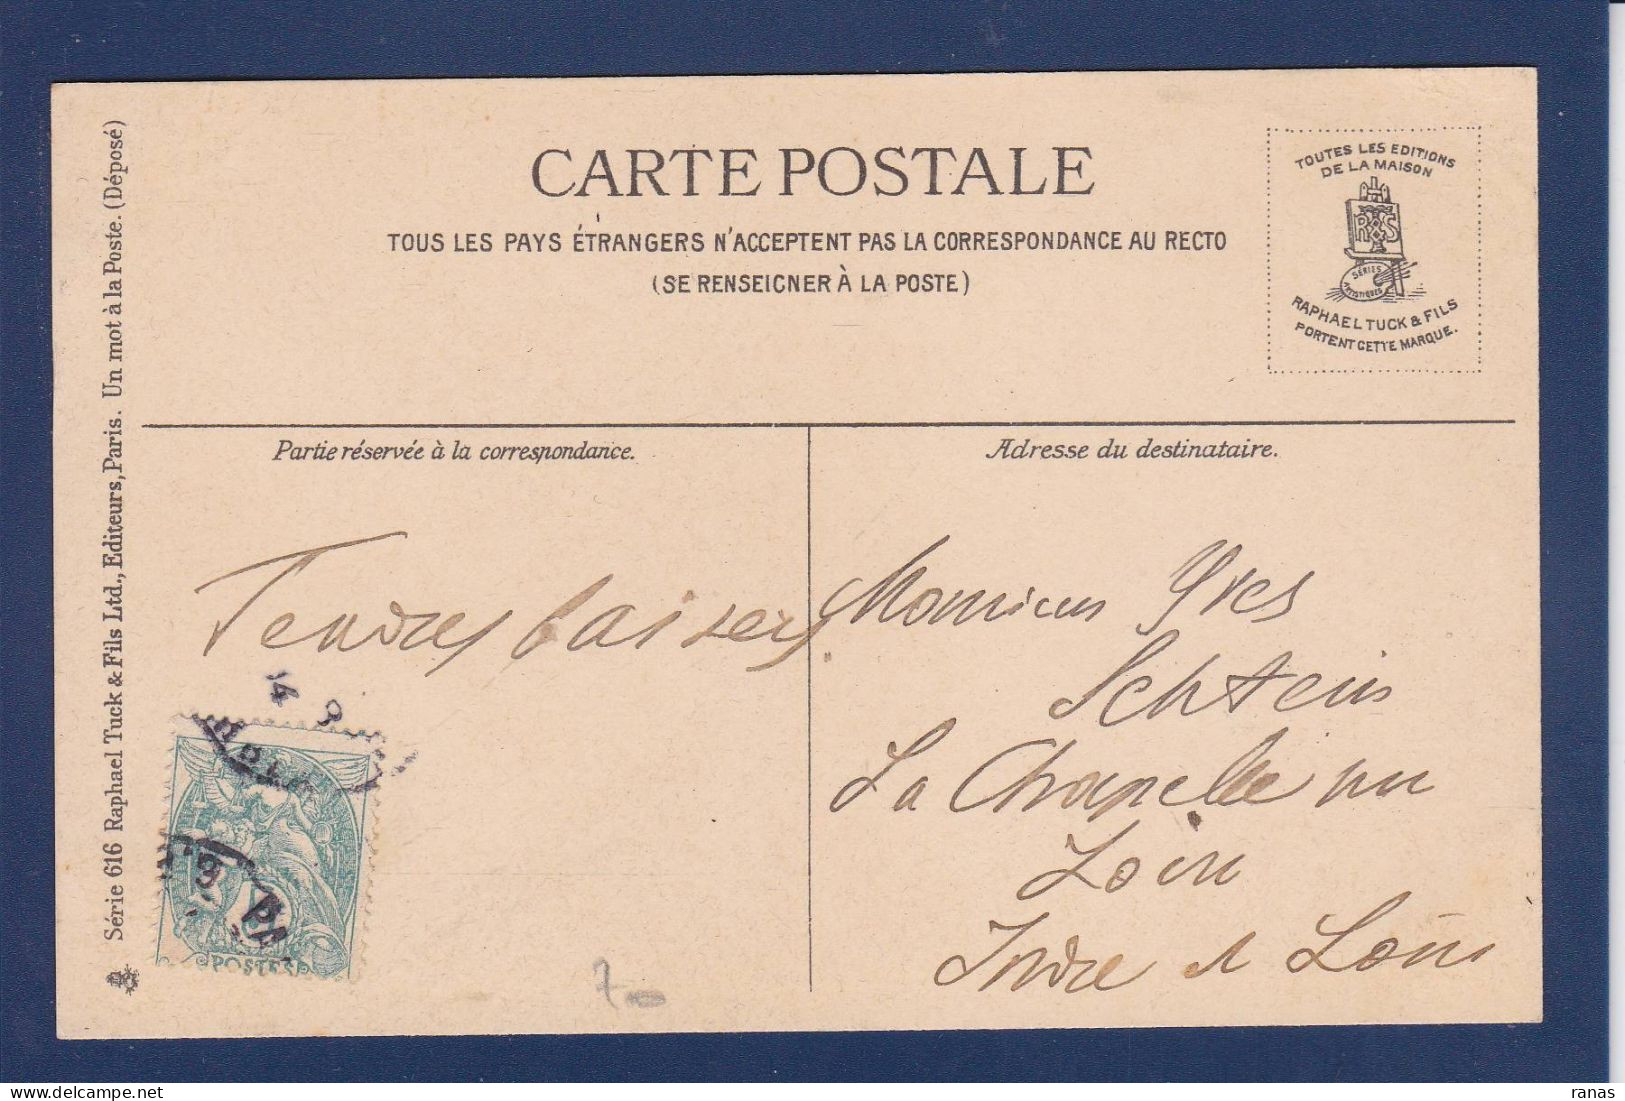 CARTE POSTALE
TOUS LES PAYS ÉTRANGERS N'ACCEPTENT PAS LA CORRESPONDANCE AU RECTO
(SE RENSEIGNER À LA POSTE)
TOUTES LES EDITIONS
DE LA MAISON
R S
SÉRIES
ARTISTIQUES
RAPHAEL TUCK & FILS
PORTENT CETTE MARQUE.
Série 616 Raphael Tuck & Fils Ltd., Editeurs, Paris. Un mot à la Poste. (Déposé)
Partie réservée à la correspondance.
Tendres baisers.
POSTES
7
Adresse du destinataire.
Monsieur Yves
Schtein
La Chapelle sur
Loire
Indre et Loire
ranas